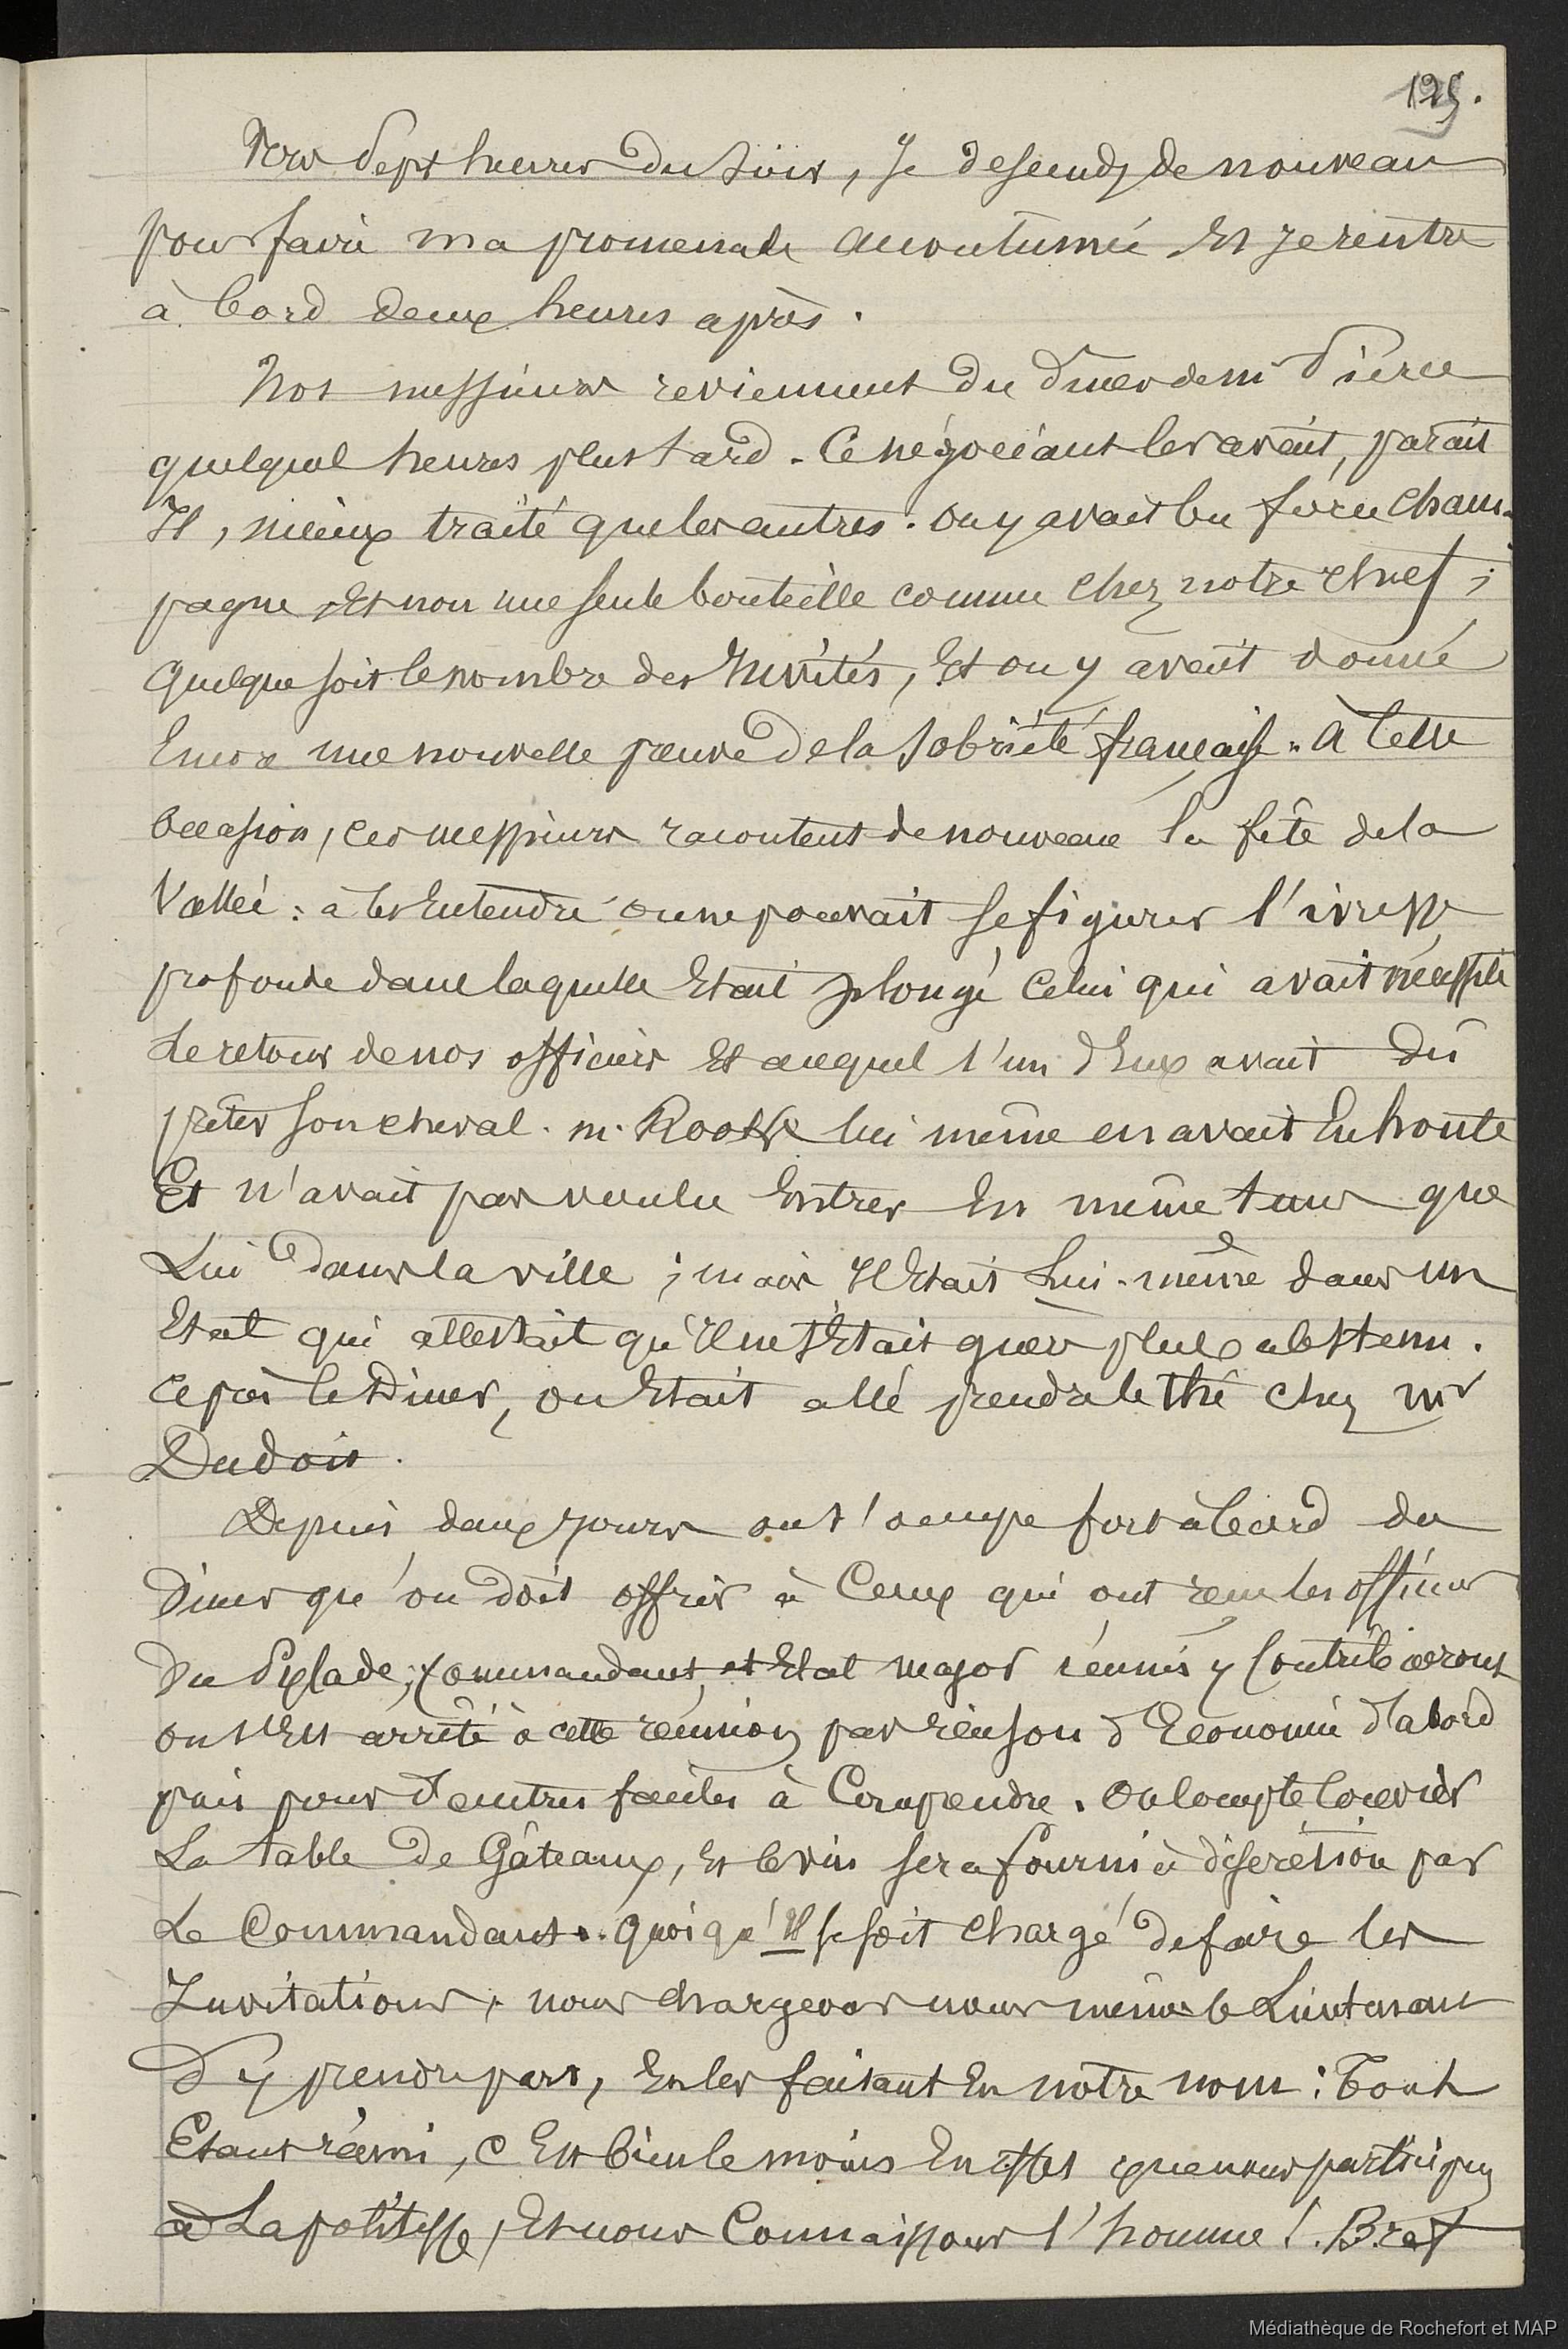 125.
Vers sept heures du soir, je descends de nouveau
pour faire ma promenade accoutumée et je rentre
à bord deux heures après.
Nos messieurs reviennent du diner de m Pierce
quelques heures plus tard. Ce négociant les avait, parait
Il, mieux traité que les autres. On y avait bu force cham-
pagne, et non une seule bouteille comme chez notre chef ;
quelque soit le nombre des Invités, Et on y avait donné
Encore une nouvelle preuve de la sobriété française. A cette
occasion, ces messieurs racontent de nouveau la fête de la
Vallée : à les Entendre on ne pouvait se figurer l'ivresse
profonde dans laquelle Etait plongé celui qui avait nécessité
le retour de nos officiers Et auquel l'un d'Eux avait dû
prêter son cheval. m. Rooke lui même en avait Eu honte
Et n'avait pas voulu Entrer En même tems que
Lui dans la ville ; mais Il Etait Lui-même dans un
Etat qui attestait qu'Il ne s'Etait guère plus abstenu.
après le Diner, on Etait allé prendre le thé chez Mr
Dudoit.
Depuis deux jours on s'occupe fort à bord du
Diner qu'on doit offrir à Ceux qui ont reçu les officiers
du Pylade ; Commandant et Etat major réunis y Contribueront
on s'Est arrêté à cette réunion par raison d'Economie d'abord
puis pour d'autres faciles à Comprendre. On compte couvrir
La table de Gâteaux, et le vin sera fourni à discrétion par
Le Commandant. Quoiqu'Il se soit chargé de faire les
Invitations, nous chargeons nous même le Lieutenant
d'y prendre part, En les faisant En notre nom : Tout
Etant réuni, c'Est bien le moins En effet que nous participions
à La politesse, Et nous Connaissons l'homme ! Bref
Médiathèque de Rochefort et MAP